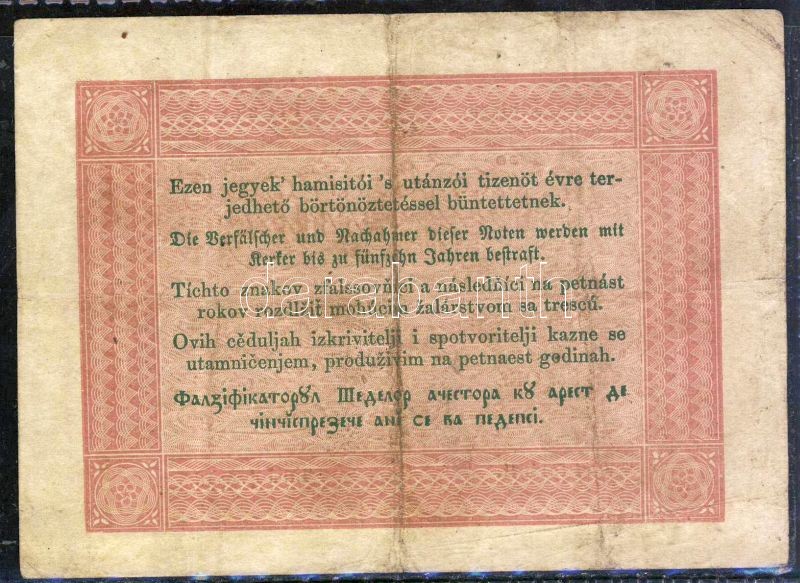 Ezen jegyek’ hamisitói ’s utánzói tizenöt évre ter-
jedhető börtönöztetéssel büntettetnek.
Die Verfälscher und Nachahmer dieser Noten werden mit
Kerker bis zu fünfzehn Jahren bestraft.
Tíchto znakov zfalssovňíci a následňíci na petnást
rokov rozdlžit mohúcím žalárstvom sa trescú.
Ovih cěduljah izkrivitelji i spotvoritelji kazne se
utamničenjem, produživim na petnaest godinah.
Фалзіфікаторꙋл Шеделор ачестора кꙋ арест де
чінчіспрезече ані се ва педепсі.
darabanth